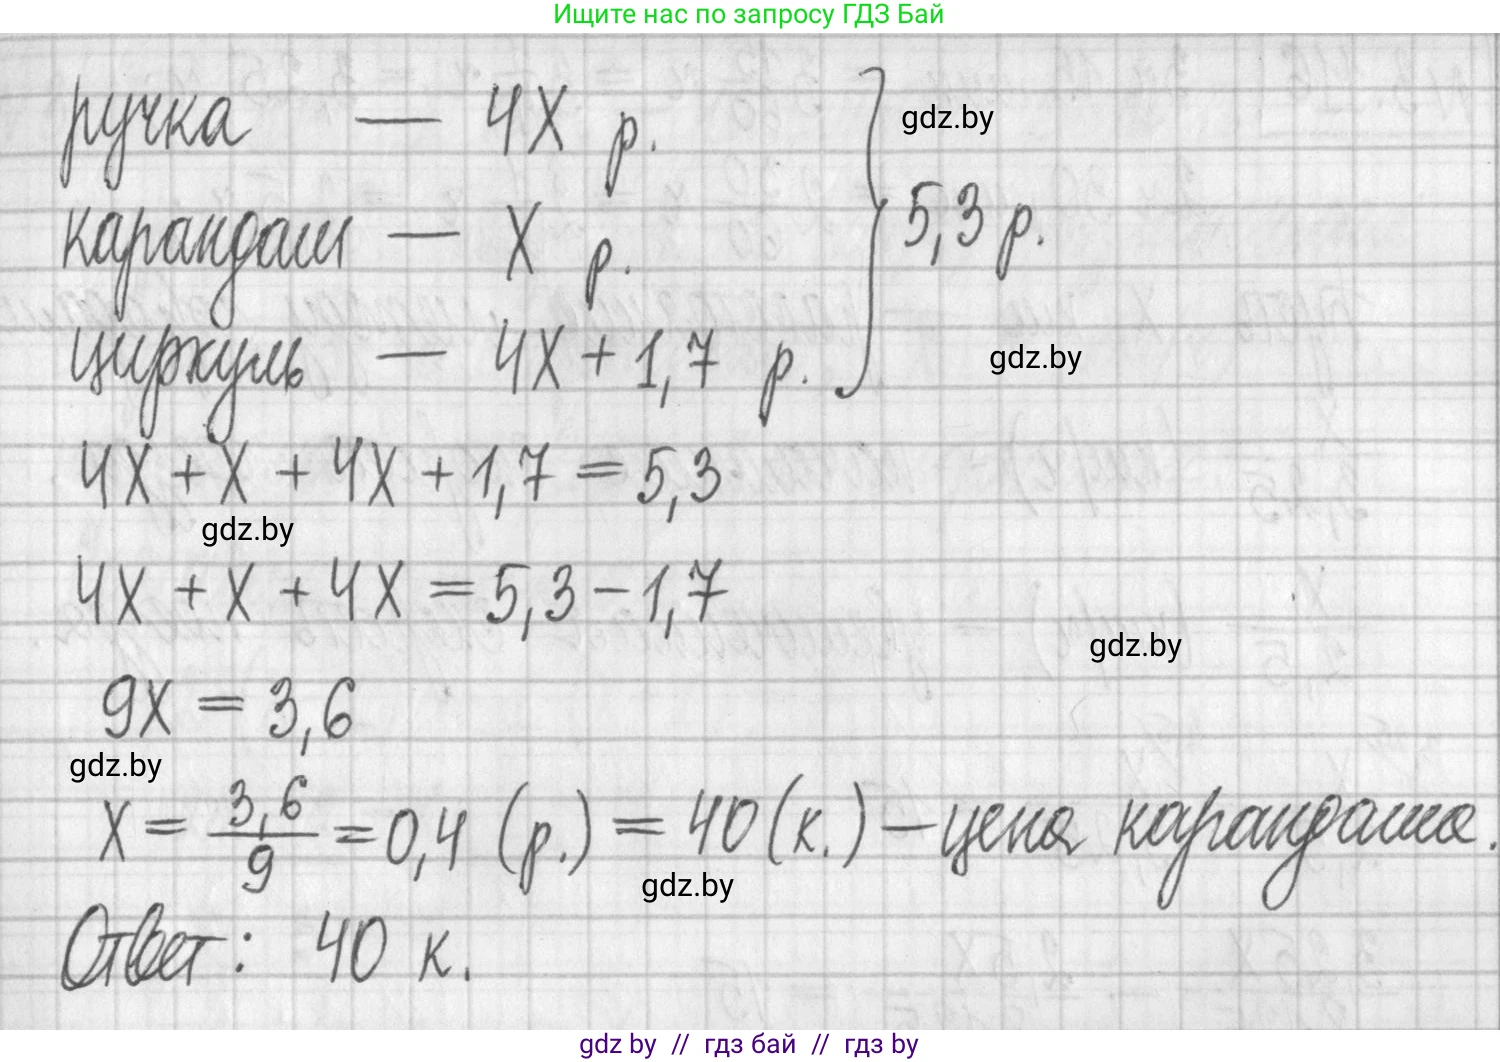 Ищите нас по запросу ГДЗ Бай
ручка — 4х р.
gdz.by
карандаш — х р.
5,3 р.
циркуль — 4х + 1,7 р.
gdz.by
4х + х + 4х + 1,7 = 5,3
gdz.by
4х + х + 4х = 5,3 − 1,7
gdz.by
9х = 3,6
gdz.by
х = 3,6/9 = 0,4 (р.) = 40 (к.) — цена карандаша.
gdz.by
Ответ: 40 к.
gdz by // гдз бай // гдз by